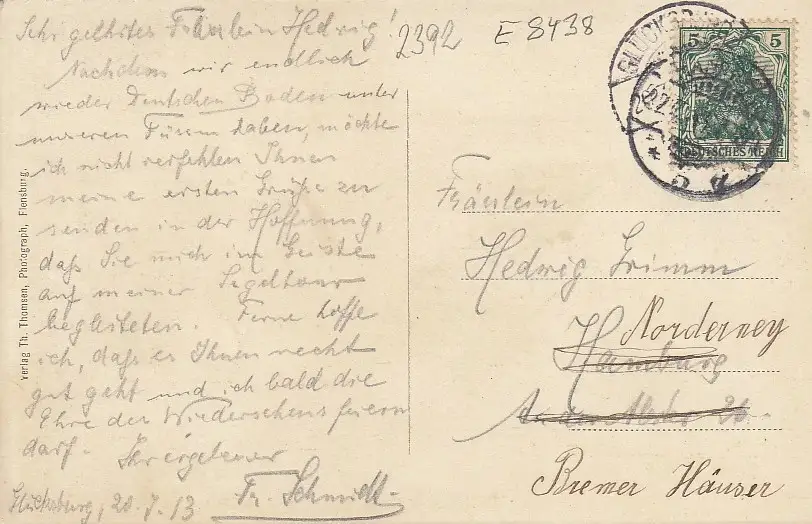 Sehr geehrtes Fräulein Hedwig!
Nachdem wir endlich
wieder Deutschen Boden unter
unseren Füssen haben, möchte
ich nicht verfehlen Ihnen
meine ersten Grüße zu
senden in der Hoffnung,
daß Sie mich im Geiste
auf meiner Segeltour
begleiteten. Ferner hoffe
ich, daß es Ihnen recht
gut geht und ich bald die
Ehre des Wiedersehens feiern
darf. Ihr ergebener
Fr. Schmidt.
Glücksburg, 20.7.13
Verlag Th. Thomsen, Photograph, Flensburg.
2392
E 8438
5 5
DEUTSCHES REICH
Fräulein
Hedwig Grimm
Norderney
Hamburg
An der Alster 20.
Bremer Häuser